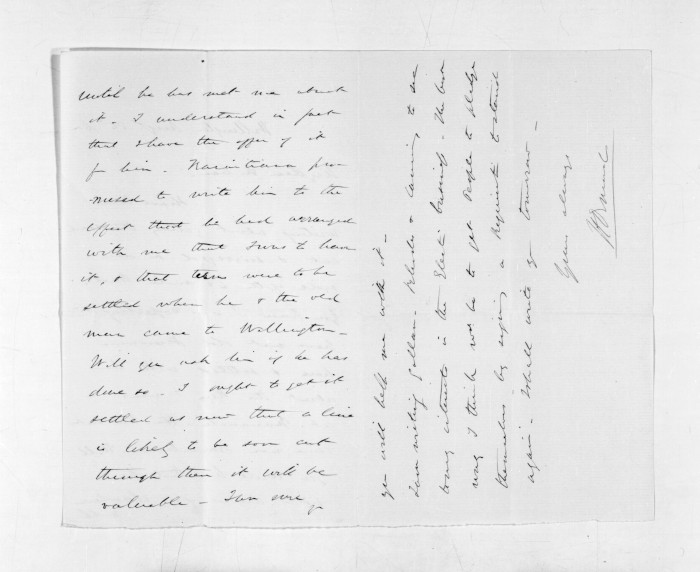 until he has met me about
it. I understand in fact
that I have the offer of it
for him. Karaitiana pro-
mised to write him to the
effect that he had arranged
with me that I was to have
it, & that terms were to be
settled when he & the old
man came to Wellington -
Will you ask him if he has
done so. I ought to get it
settled as now that a line
is likely to be soon cut
through then it will be
valuable - I am sure
you will help me with it -
I am writing Gollan. & Canning to see
in the Election business. The best
way I think will be to get people to pledge
themselves by signing a Requisition to stand
again - I shall write you tomorrow -
Yours always